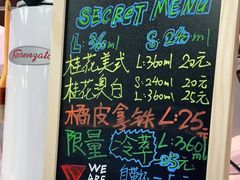 SECRET MENU
L:360ml S:240ml
桂花美式 L:360ml 20元
桂花澳白 S:240ml 20元
L:360ml 25元
橘皮拿铁 L:25元
限量 冷萃 L360ml
25元
WE
ARE
自带杯
Farenzato